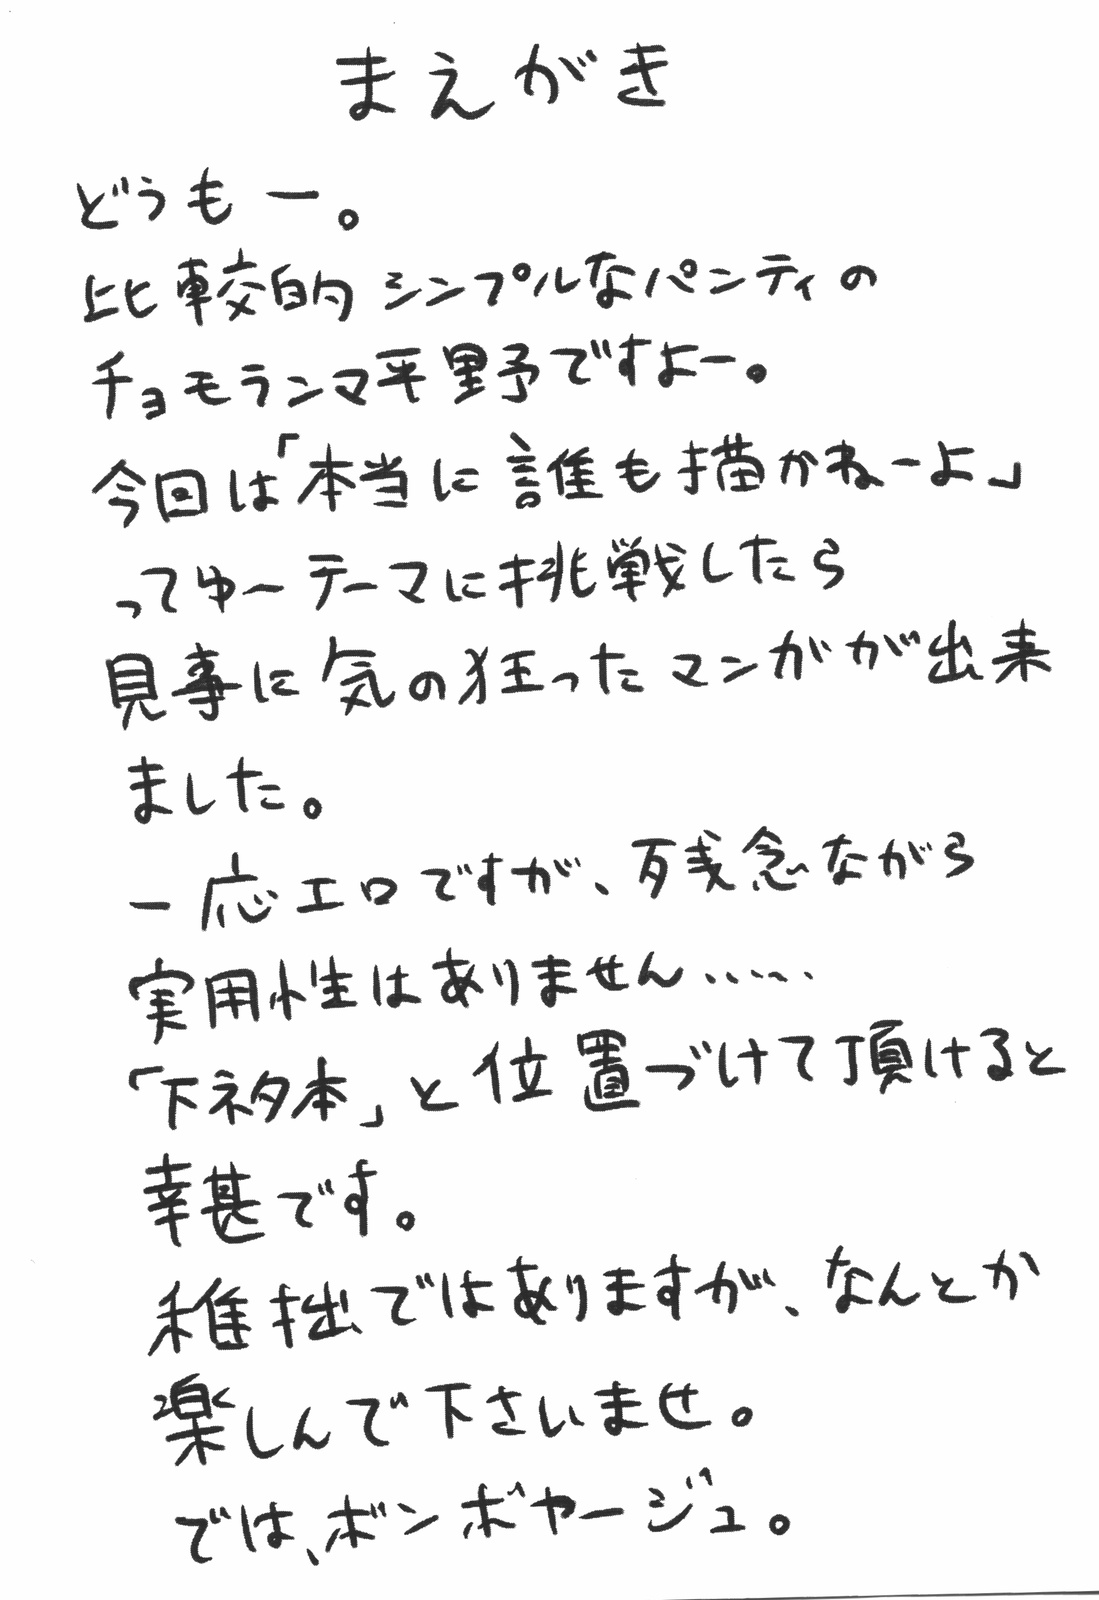 まえがき
どうもー。
比較的シンプルなパンティの
チョモランマ平野ですよー。
今回は「本当に誰も描かねーよ」
ってゆーテーマに挑戦したら
見事に気の狂ったマンガが出来
ました。
一応エロですが、残念ながら
実用性はありません……
「下ネタ本」と位置づけて頂けると
幸甚です。
稚拙ではありますが、なんとか
楽しんで下さいませ。
では、ボンボヤージュ。